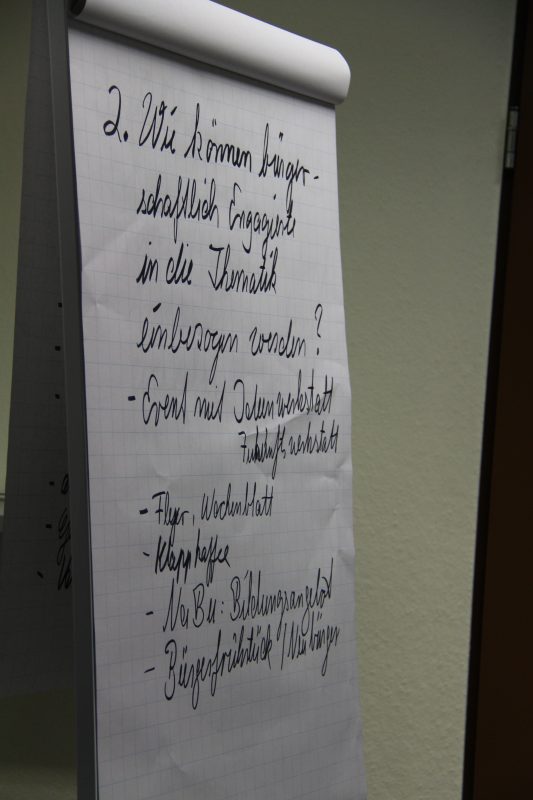 2. Wie können bürger-
schaftlich Engagierte
in die Thematik
einbezogen werden?
- Event mit Ideenwerkstatt
Zukunftswerkstatt
- Flyer, Wochenblatt
- Klappkaffee
- NaBu: Bildungsangebot
- Bürgerfrühstück / Neubürger